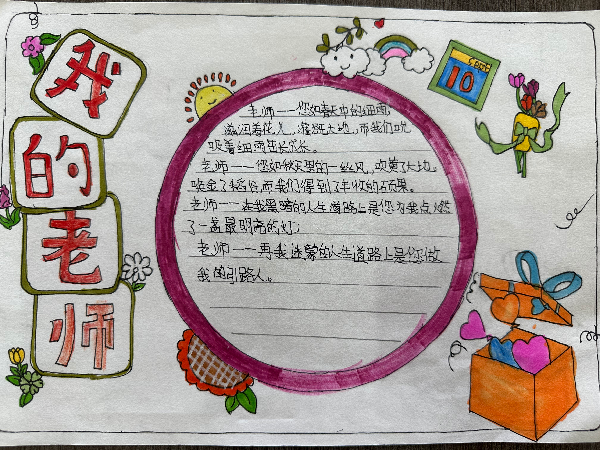 我的老师
10
老师——您如春天中的细雨,
滋润着花儿,灌溉大地,而我们吮
吸着细雨茁长成长。
老师——您如秋天里的一丝风,吹黄了大地,
唤金了稻谷,而我们得到了丰收的硕果。
老师——在我黑暗的人生道路上是您为我点燃
了一盏最明亮的灯;
老师——再我迷蒙的人生道路上是您做
我的引路人。